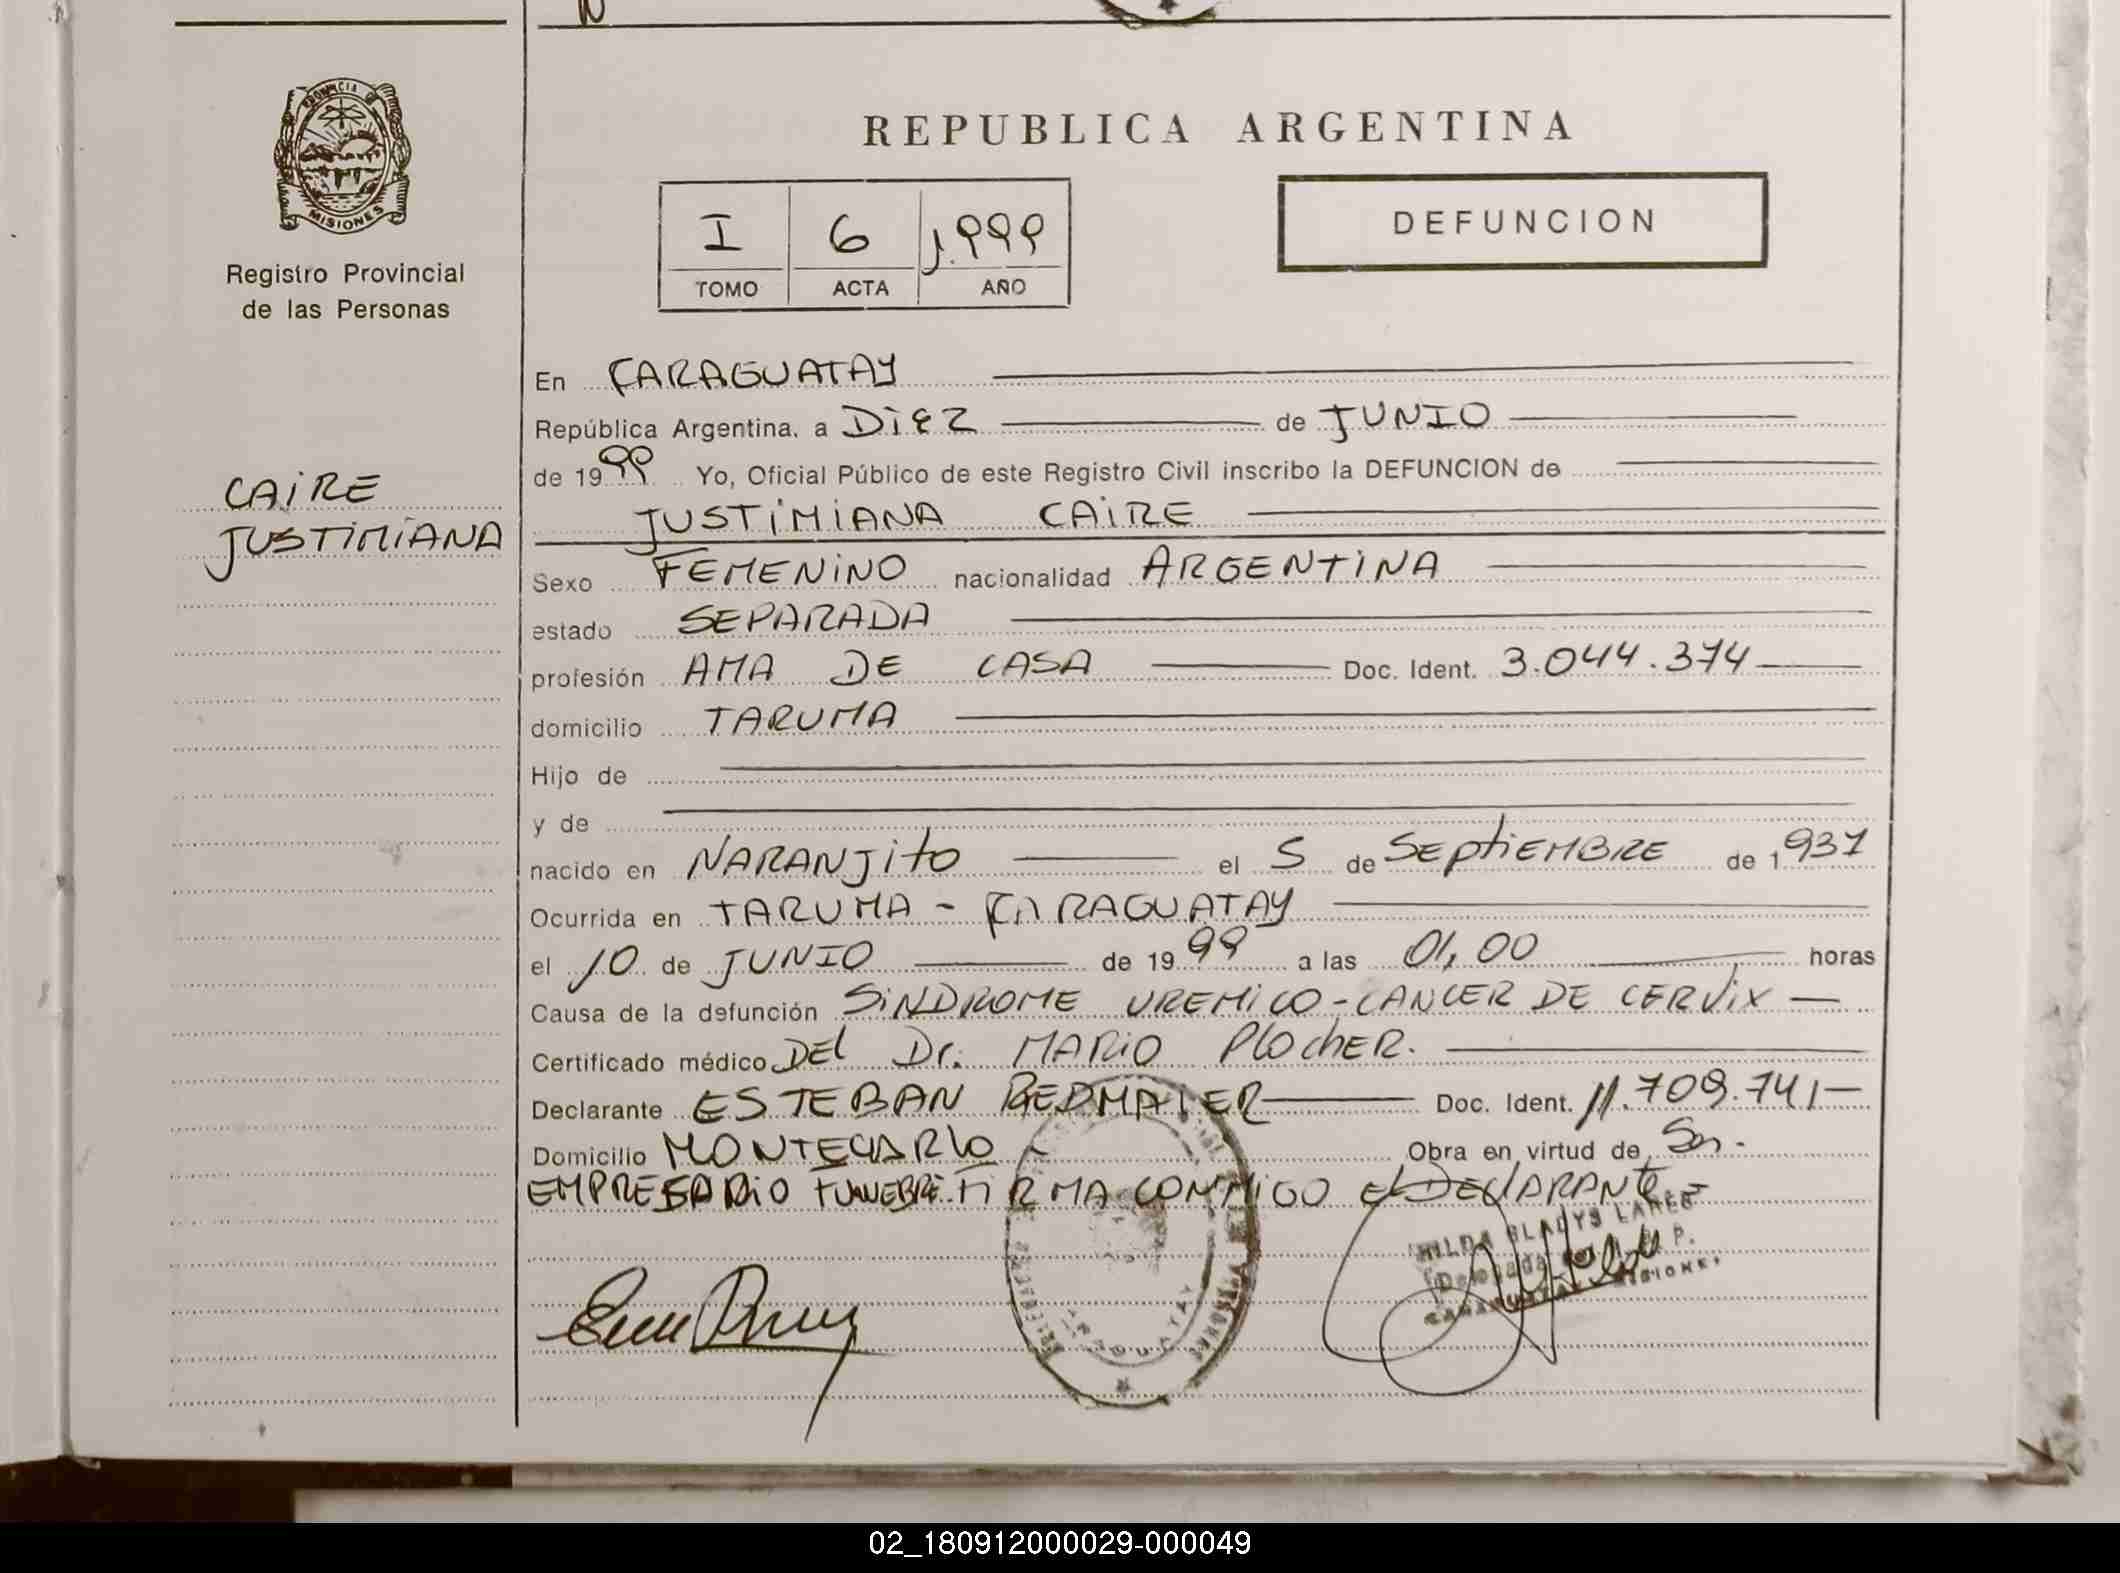 PROVINCIA DE
MISIONES
Registro Provincial
de las Personas
CAIRE
JUSTIMIANA
REPUBLICA ARGENTINA
I 6 1.999
TOMO ACTA AÑO
DEFUNCION
En CARAGUATAY
República Argentina, a DiEZ de JUNIO
de 1999 Yo, Oficial Público de este Registro Civil inscribo la DEFUNCION de
JUSTIMIANA CAIRE
Sexo FEMENINO nacionalidad ARGENTINA
estado SEPARADA
profesión AMA DE CASA Doc. Ident. 3.044.374
domicilio TARUMA
Hijo de
y de
nacido en NARANJito el 5 de SEPtiEMBRE de 1937
Ocurrida en TARUMA - CARAGUATAY
el 10 de JUNIO de 1999 a las 01,00 horas
Causa de la defunción SINDROME UREMICO - CANCER DE CERVIX
Certificado médico DEl Dr. MARIO PlOchER.
Declarante ESTEBAN REDMAIER Doc. Ident. 11.709.741
Domicilio MONTECARlO Obra en virtud de Ser
EMPRESARIO FUNEBRE. FIRMA CONMIGO El DEClARANTE
HILDA GLADYS
Delegada R. P. P.
CARAGUATAY MISIONES
CARAGUATAY
02_180912000029-000049